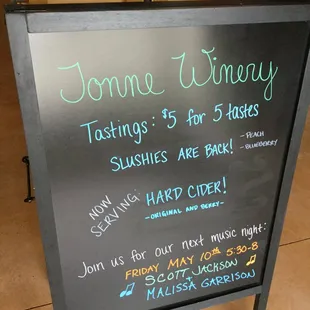 Tonne Winery
Tastings: $5 for 5 tastes
SLUSHIES ARE BACK!
- PEACH
- BLUEBERRY
NOW
SERVING:
HARD CIDER!
- ORIGINAL AND BERRY -
Join us for our next music night:
FRIDAY MAY 10TH 5:30-8
SCOTT JACKSON
+
MALISSA GARRISON